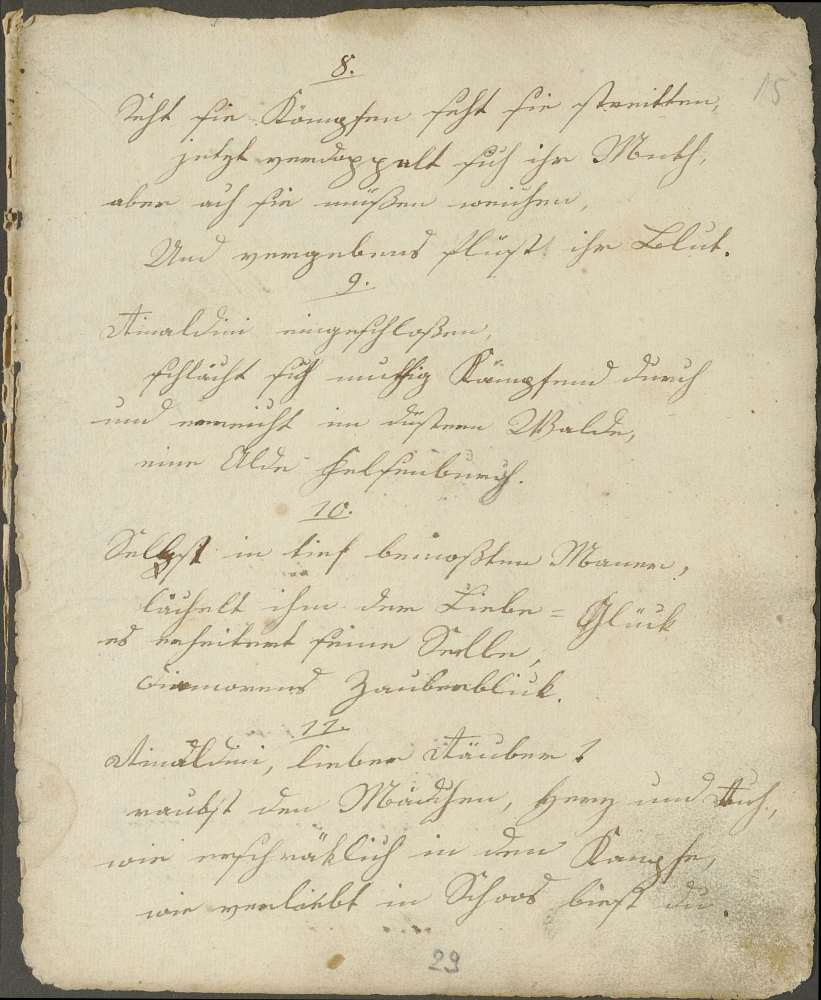 15
8.
Seht sie Kömpfen seht sie streitten,
jetzt verdoppalt sich ihr Muth,
aber ach sie müßen weichen,
Und vergebens flüst ihr Blut.
9.
Rinaldini eingeschloßen,
schlächt sich muthig Kämpfend durch
und erreicht im düstern Walde,
eine Alde Felsenburch.
10.
Selbst in tief bemoßten Mauern,
lächelt ihm der Liebe = Glück
es erheitert seine Seelle,
Dianorens Zauberblick.
11.
Rinaldini, lieber Räuber!
raubst den Mädchen, Herz und Ruh,
wie erschräklich in den Kampfe,
wie verliebt in Schoos biest du.
29